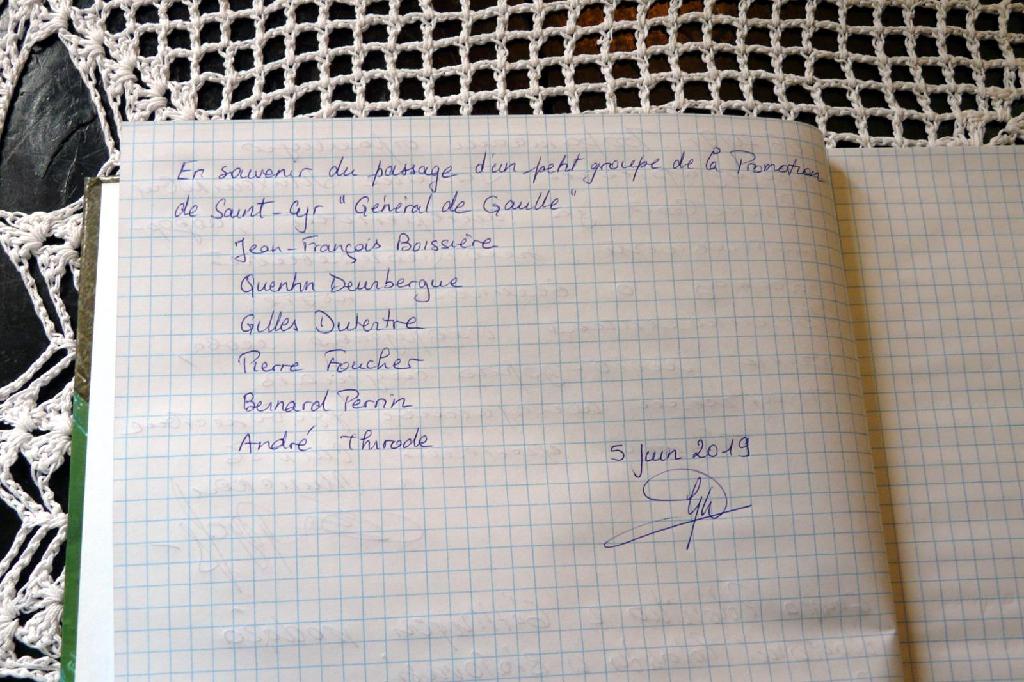 En souvenir du passage d'un petit groupe de la Promotion
de Saint-Cyr "Général de Gaulle"
Jean-François Boissière
Quentin Deurbergue
Gilles Dutertre
Pierre Foucher
Bernard Perrin
André Thirode
5 juin 2019